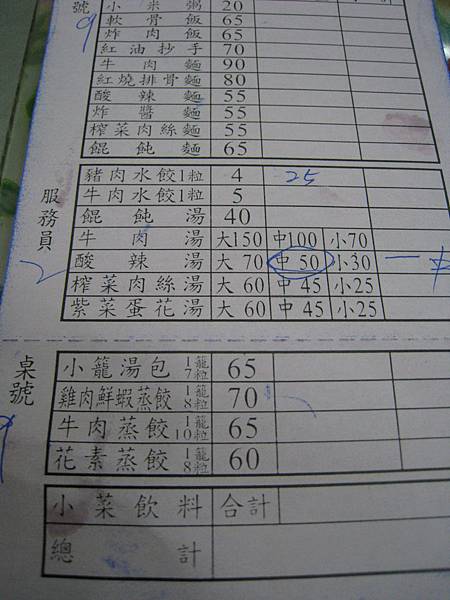 號
小米粥 20
9
軟骨飯 65
炸肉飯 65
紅油抄手 70
牛肉麵 90
紅燒排骨麵 80
酸辣麵 55
炸醬麵 55
榨菜肉絲麵 55
餛飩麵 65
服務員
豬肉水餃1粒 4 25
牛肉水餃1粒 5
餛飩湯 40
牛肉湯 大150 中100 小70
酸辣湯 大70 中50 小30 一
榨菜肉絲湯 大60 中45 小25
紫菜蛋花湯 大60 中45 小25
桌號
小籠湯包 1籠7粒 65
雞肉鮮蝦蒸餃 1籠8粒 70
牛肉蒸餃 1籠10粒 65
花素蒸餃 1籠8粒 60
小菜飲料 合計
總計